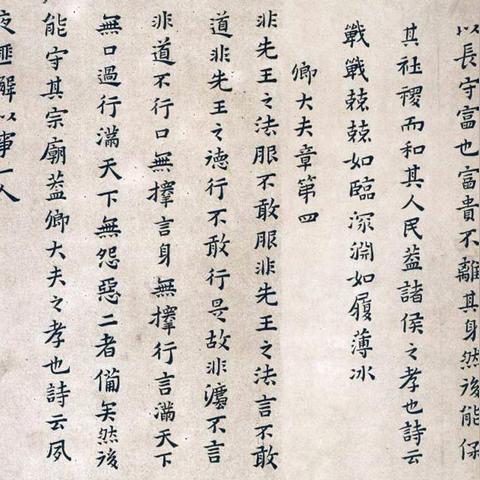 以長守富也富貴不離其身然後能保
其社稷而和其人民蓋諸侯之孝也詩云
戰戰兢兢如臨深淵如履薄冰
卿大夫章第四
非先王之法服不敢服非先王之法言不敢
道非先王之德行不敢行是故非灋不言
非道不行口無擇言身無擇行言滿天下
無口過行滿天下無怨惡二者備矣然後
能守其宗廟蓋卿大夫之孝也詩云夙
夜匪解以事一人